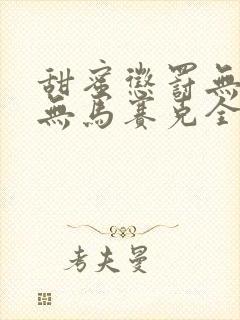 甜蜜懲罰無
無馬賽克全
考夫曼